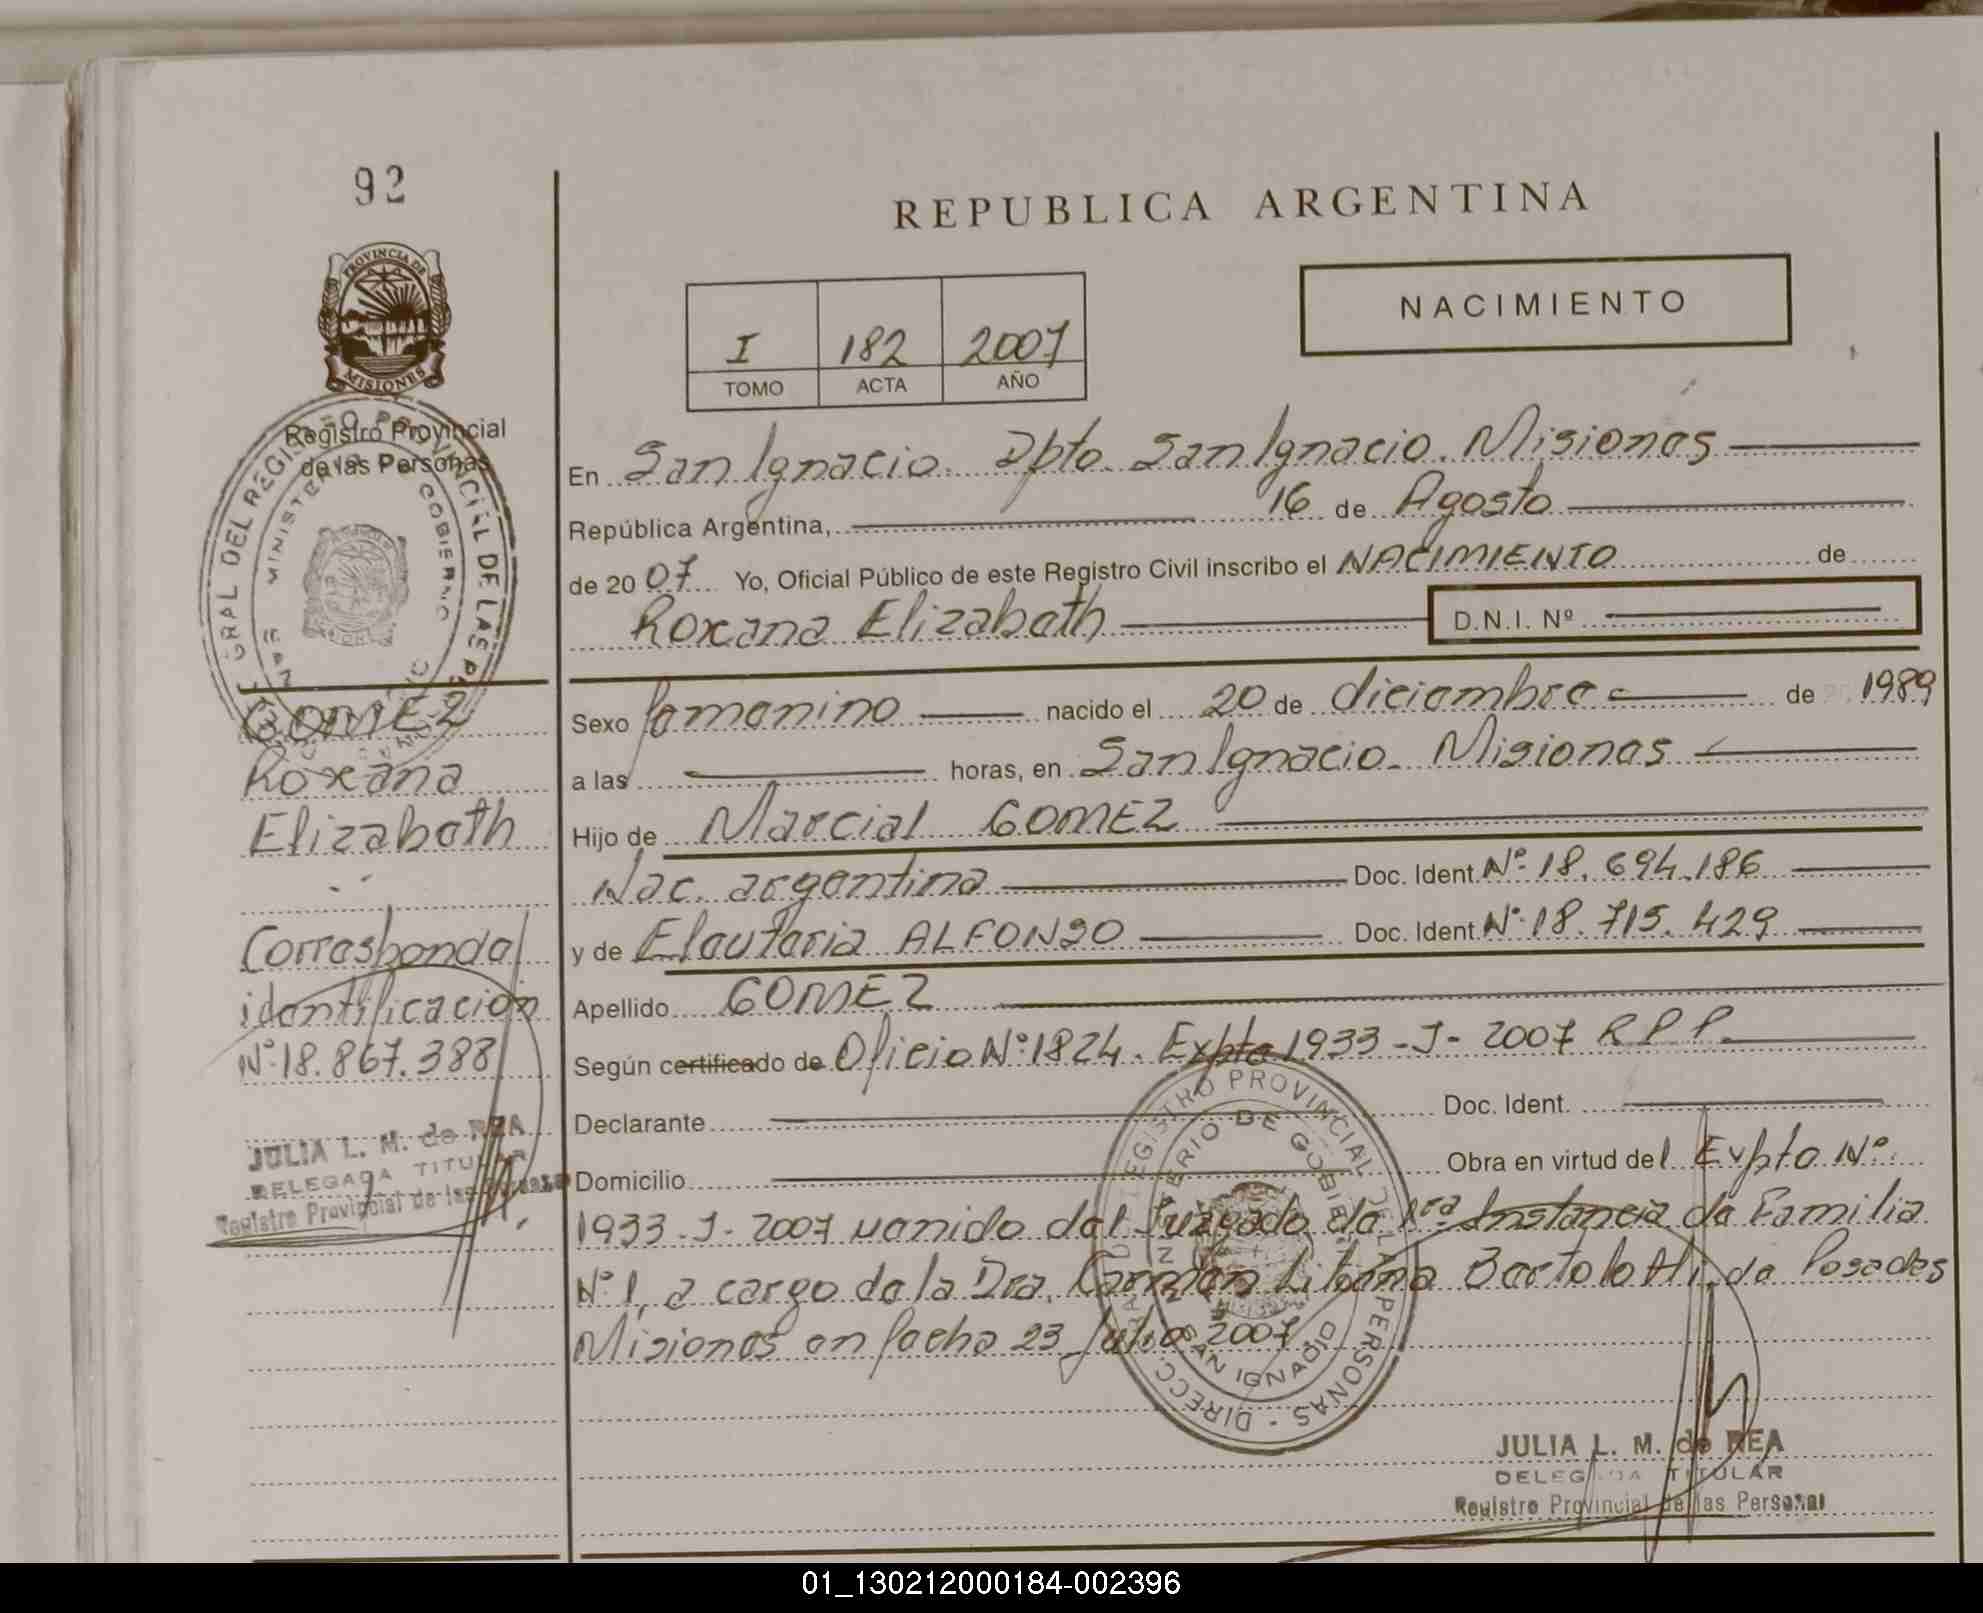 92
REPUBLICA ARGENTINA
PROVINCIA DE
MISIONES
NACIMIENTO
I 182 2007
TOMO ACTA AÑO
Registro Provincial
de las Personas
En San Ignacio. Dpto. San Ignacio. Misiones
República Argentina, 16 de Agosto
de 2007 Yo, Oficial Público de este Registro Civil inscribo el NACIMIENTO de
Roxana Elizabeth D.N.I. Nº
Sexo femenino nacido el 20 de diciembre de 1989
a las horas, en San Ignacio. Misiones
Hijo de Marcial GOMEZ
Nac. argentina Doc. Ident. Nº 18.694.186
y de Eleuteria ALFONSO Doc. Ident. Nº 18.715.429
Apellido GOMEZ
Según certificado de Oficio Nº 1824. Expte 1933-J-2007 R.P.P.
Declarante Doc. Ident.
Domicilio Obra en virtud del Expte Nº
1933-J-2007 venido del Juzgado de 1ra Instancia de Familia
Nº 1, a cargo de la Dra. Carmen Liliana Bartolotti, de Posadas
Misiones en fecha 23 Julio 2007
GOMEZ
Roxana
Elizabeth
Corresponde
identificación
Nº 18.867.388
JULIA L. M. de REA
DELEGADA TITULAR
Registro Provincial de las Personas
REGISTRO PROVINCIAL DE LAS PERSONAS - DIRECC
MINISTERIO DE GOBIERNO
SAN IGNACIO
JULIA L. M. de REA
DELEGADA TITULAR
Registro Provincial de las Personas
GRAL DEL REGISTRO PROVINCIAL DE LAS
MINISTERIO GOBIERNO
01_130212000184-002396